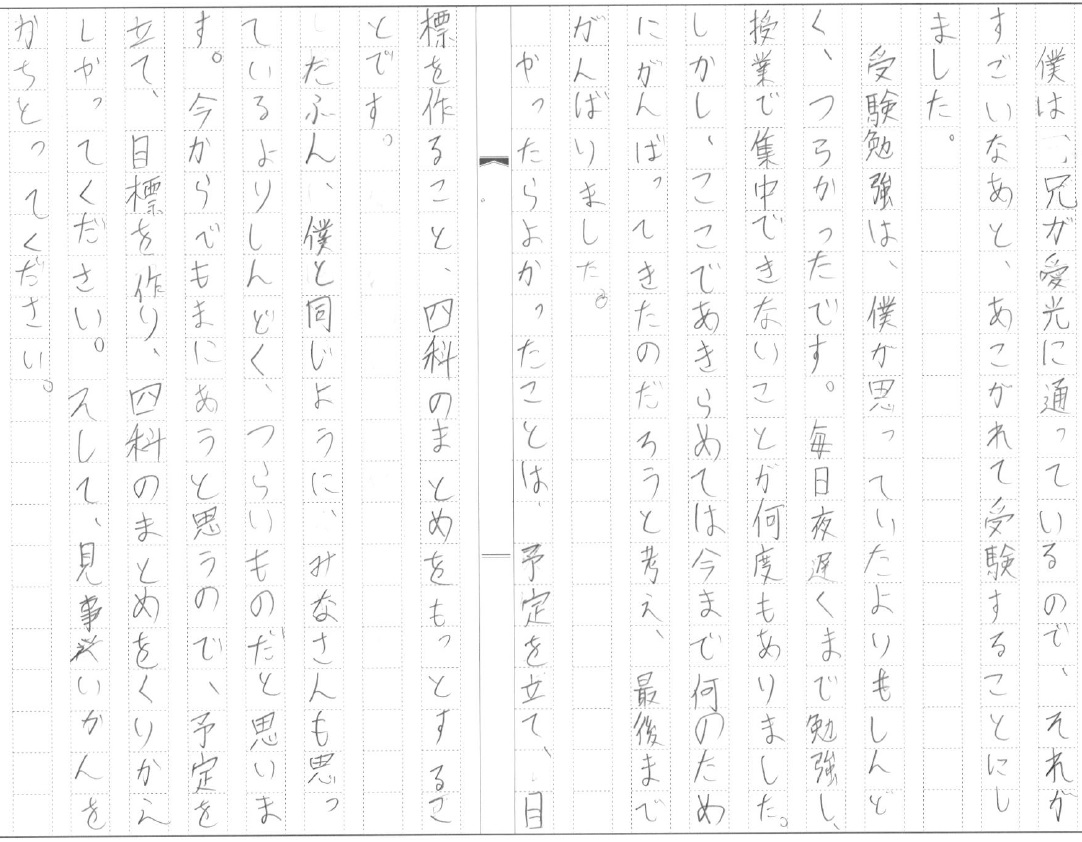 僕は、兄が愛光に通っているので、それが
すごいなあと、あこがれて受験することにし
ました。
受験勉強は、僕が思っていたよりもしんど
く、つらかったです。毎日夜遅くまで勉強し、
授業で集中できないことが何度もありました。
しかし、ここであきらめては今まで何のため
にがんばってきたのだろうと考え、最後まで
がんばりました。
やったらよかったことは、予定を立て、目
標を作ること、四科のまとめをもっとするこ
とです。
だぶん、僕と同じように、みなさんも思っ
ているよりしんどく、つらいものだと思いま
す。今からでもまにあうと思うので、予定を
立て、目標を作り、四科のまとめをくりかえ
しやってください。そして、見事あいかんを
かちとってください。